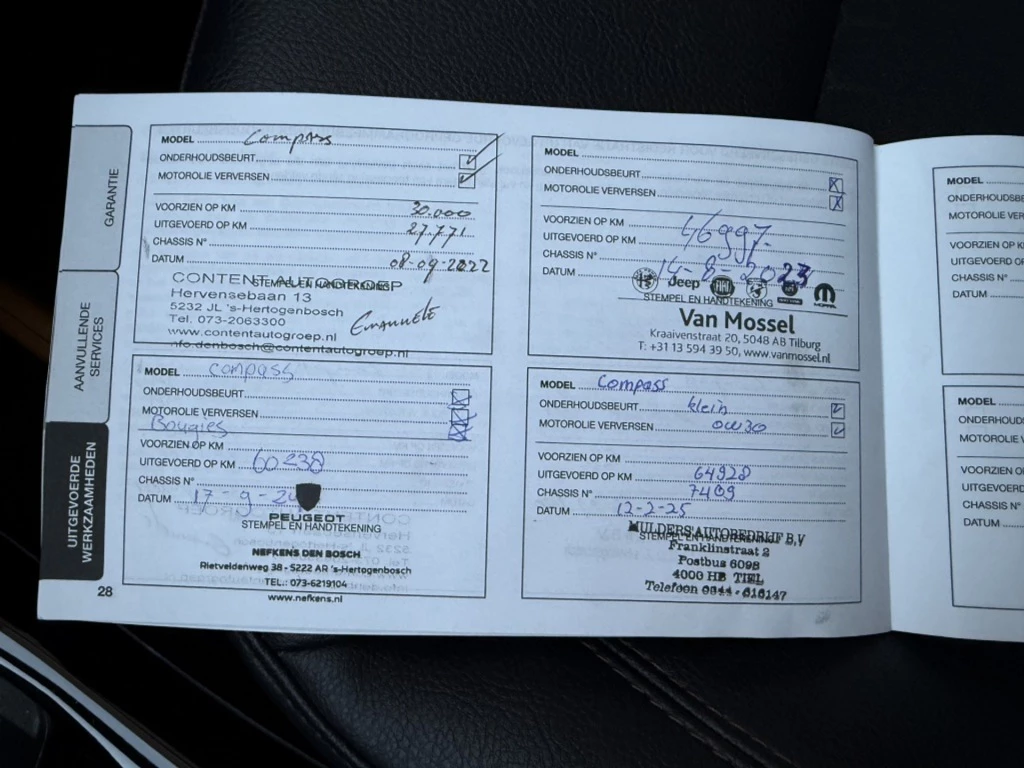 GARANTIE
AANVULLENDE
SERVICES
UITGEVOERDE
WERKZAAMHEDEN
28
MODEL Compass
ONDERHOUDSBEURT
MOTOROLIE VERVERSEN
VOORZIEN OP KM 30.000
UITGEVOERD OP KM 27.771
CHASSIS N°
DATUM 08-09-2022
STEMPEL EN HANDTEKENING
CONTENT AUTOGROEP
Hervensebaan 13
5232 JL 's-Hertogenbosch
Tel. 073-2063300
www.contentautogroep.nl
info.denbosch@contentautogroep.nl
Emanuele
MODEL
ONDERHOUDSBEURT
MOTOROLIE VERVERSEN
VOORZIEN OP KM
UITGEVOERD OP KM 46997
CHASSIS N°
DATUM 14-8-2023
Jeep
FIAT
MOPAR
STEMPEL EN HANDTEKENING
Van Mossel
Kraaivenstraat 20, 5048 AB Tilburg
T: +31 13 594 39 50, www.vanmossel.nl
MODEL compass
ONDERHOUDSBEURT
MOTOROLIE VERVERSEN
Bougies
VOORZIEN OP KM
UITGEVOERD OP KM 60238
CHASSIS N°
DATUM 17-9-24
PEUGEOT
STEMPEL EN HANDTEKENING
NEFKENS DEN BOSCH
Rietveldenweg 38 - 5222 AR 's-Hertogenbosch
TEL.: 073-6219104
www.nefkens.nl
MODEL Compass
ONDERHOUDSBEURT klein
MOTOROLIE VERVERSEN 0W30
VOORZIEN OP KM
UITGEVOERD OP KM 64928
CHASSIS N° 7409
DATUM 12-2-25
STEMPEL EN HANDTEKENING
MULDERS AUTOBEDRIJF B.V
Franklinstraat 2
Postbus 6098
4000 HB TIEL
Telefoon 0344 - 616147
MODEL
ONDERHOUDSB
MOTOROLIE VER
VOORZIEN OP K
UITGEVOERD
CHASSIS N°
DATUM
MODEL
ONDERHOUD
MOTOROLIE V
VOORZIEN O
UITGEVOERD
CHASSIS N°
DATUM